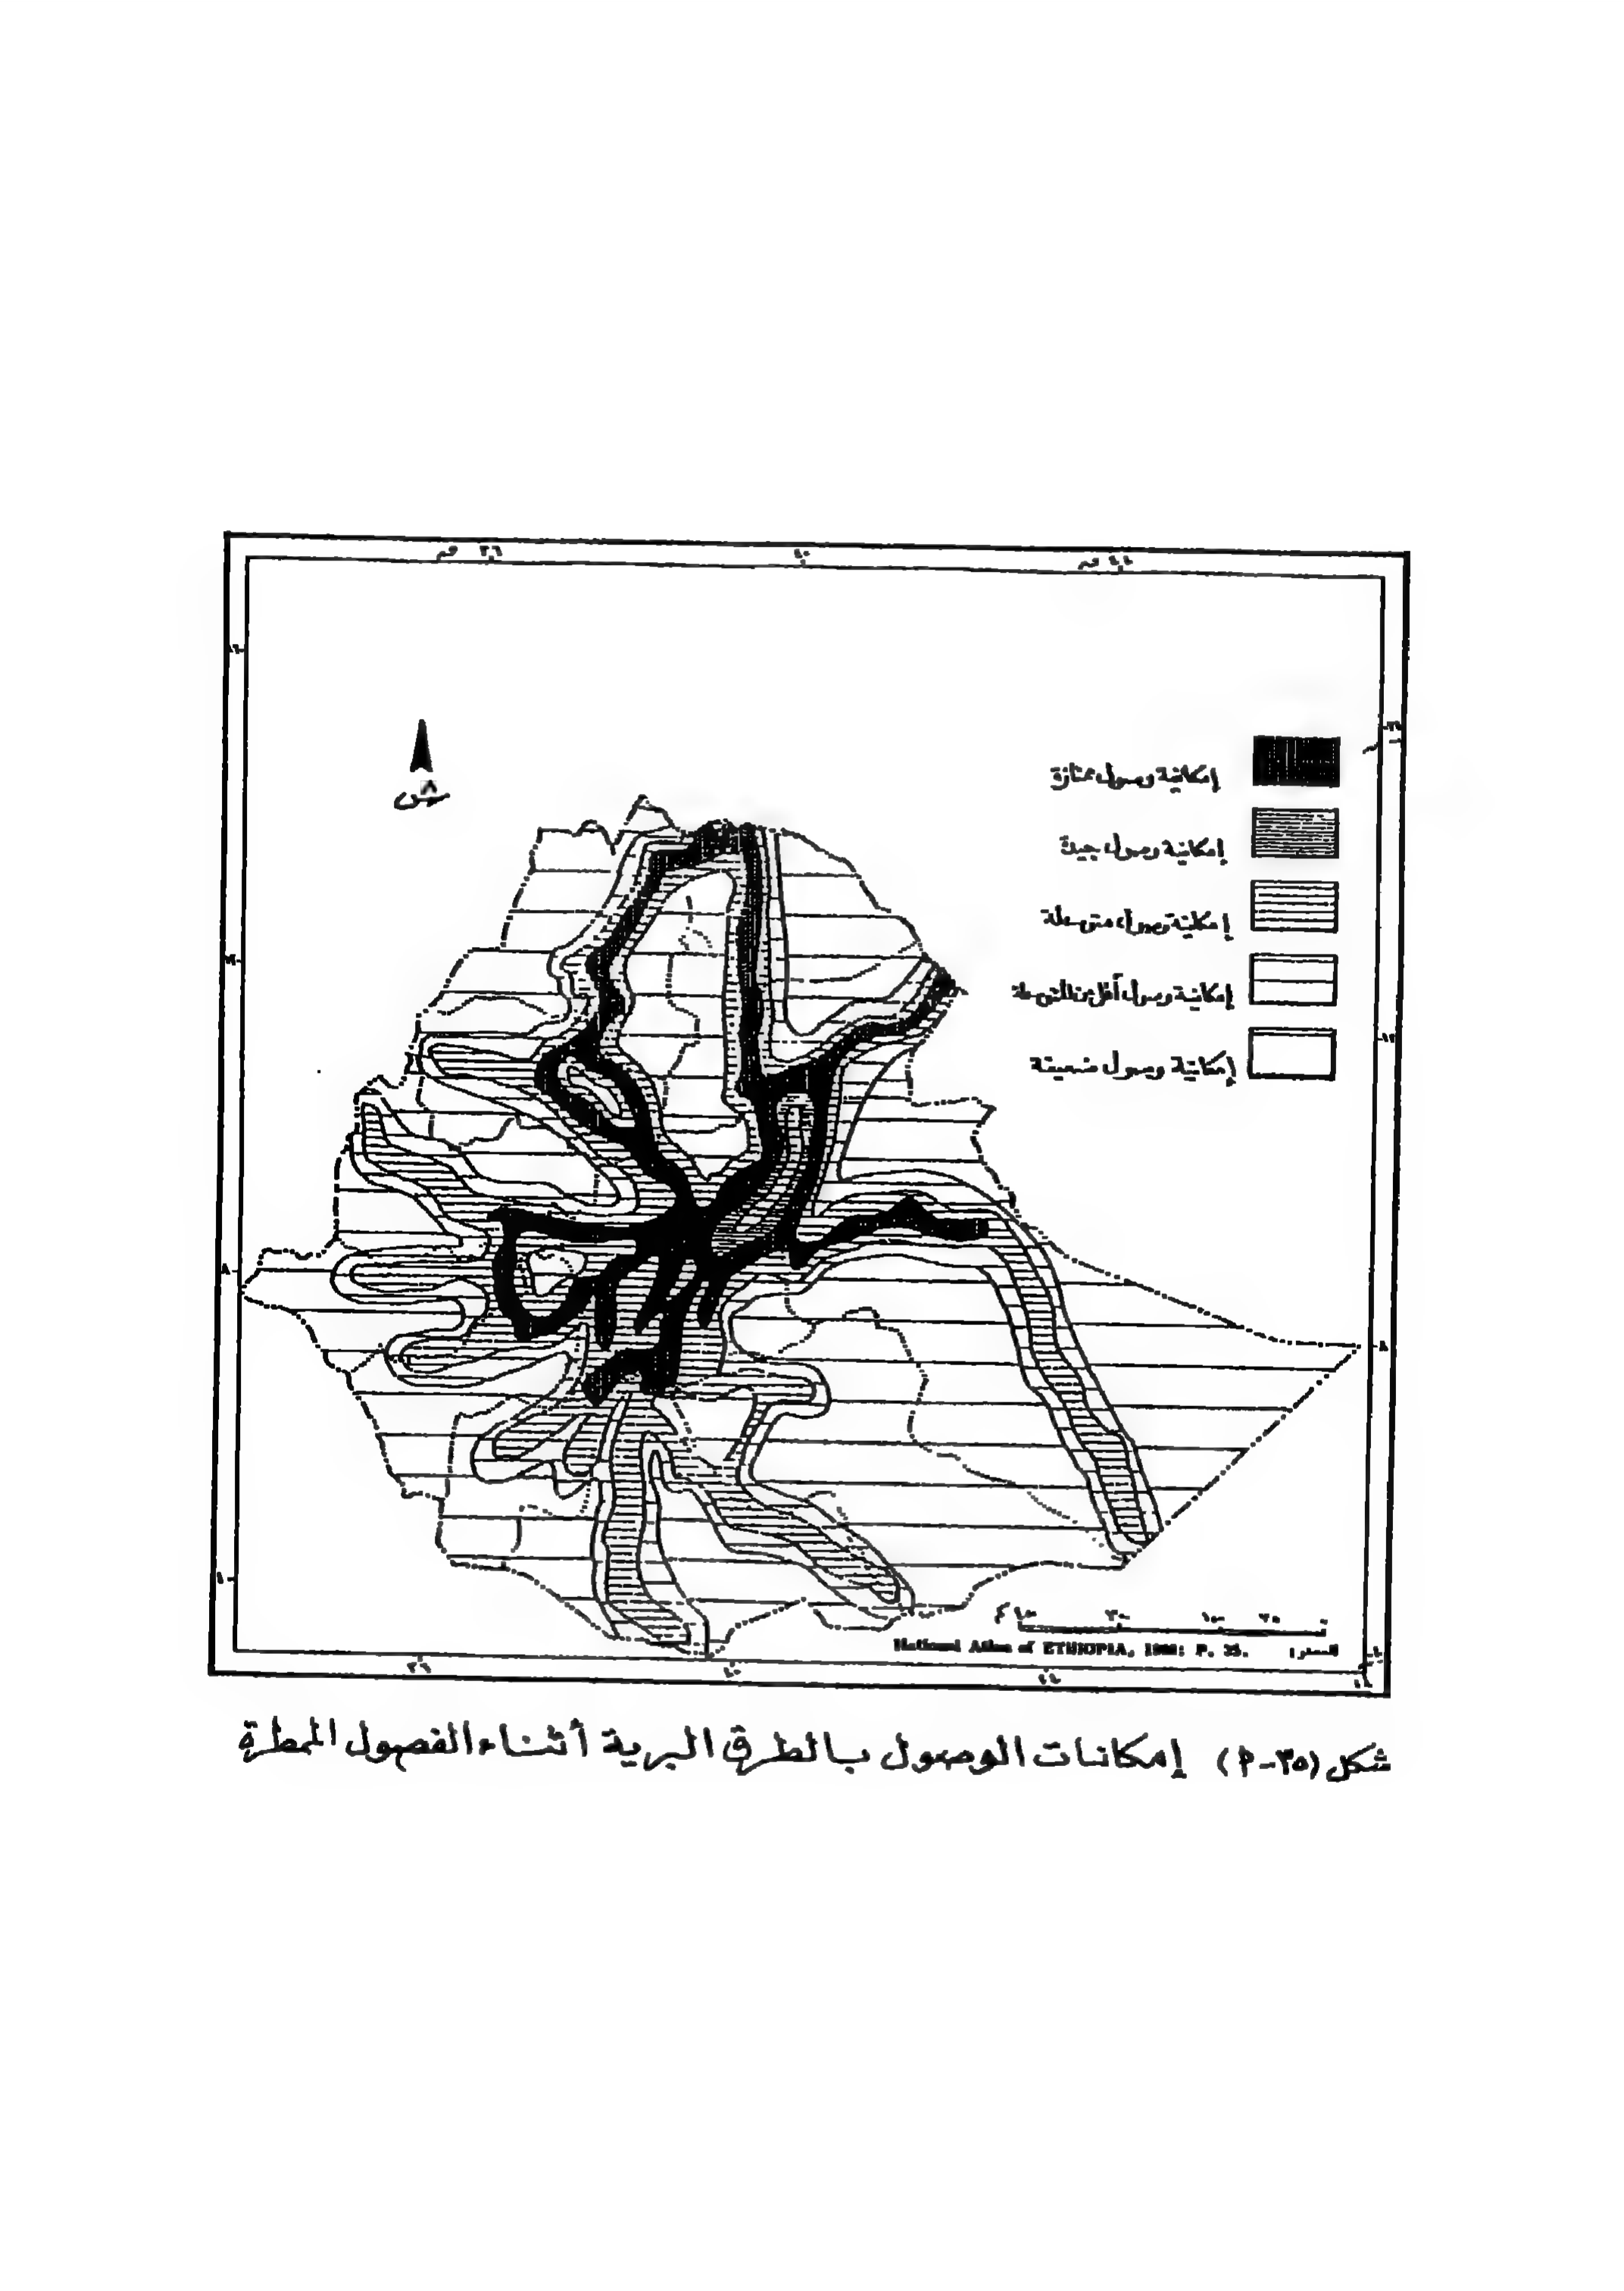 ٣٦ ق
٤٠
٤٤ ق
ش
إمكانية وصول ممتازة
إمكانية وصول جيدة
إمكانية وصول متوسطة
إمكانية وصول أقل من المتوسطة
إمكانية وصول ضعيفة
١٢
٨
٨
٣٦
٤٠
٤٤
National Atlas of ETHIOPIA, 1988: P. 35. المصدر:
شكل (٣٥-٢) إمكانات الوصول بالطرق البرية أثناء الفصول الممطرة